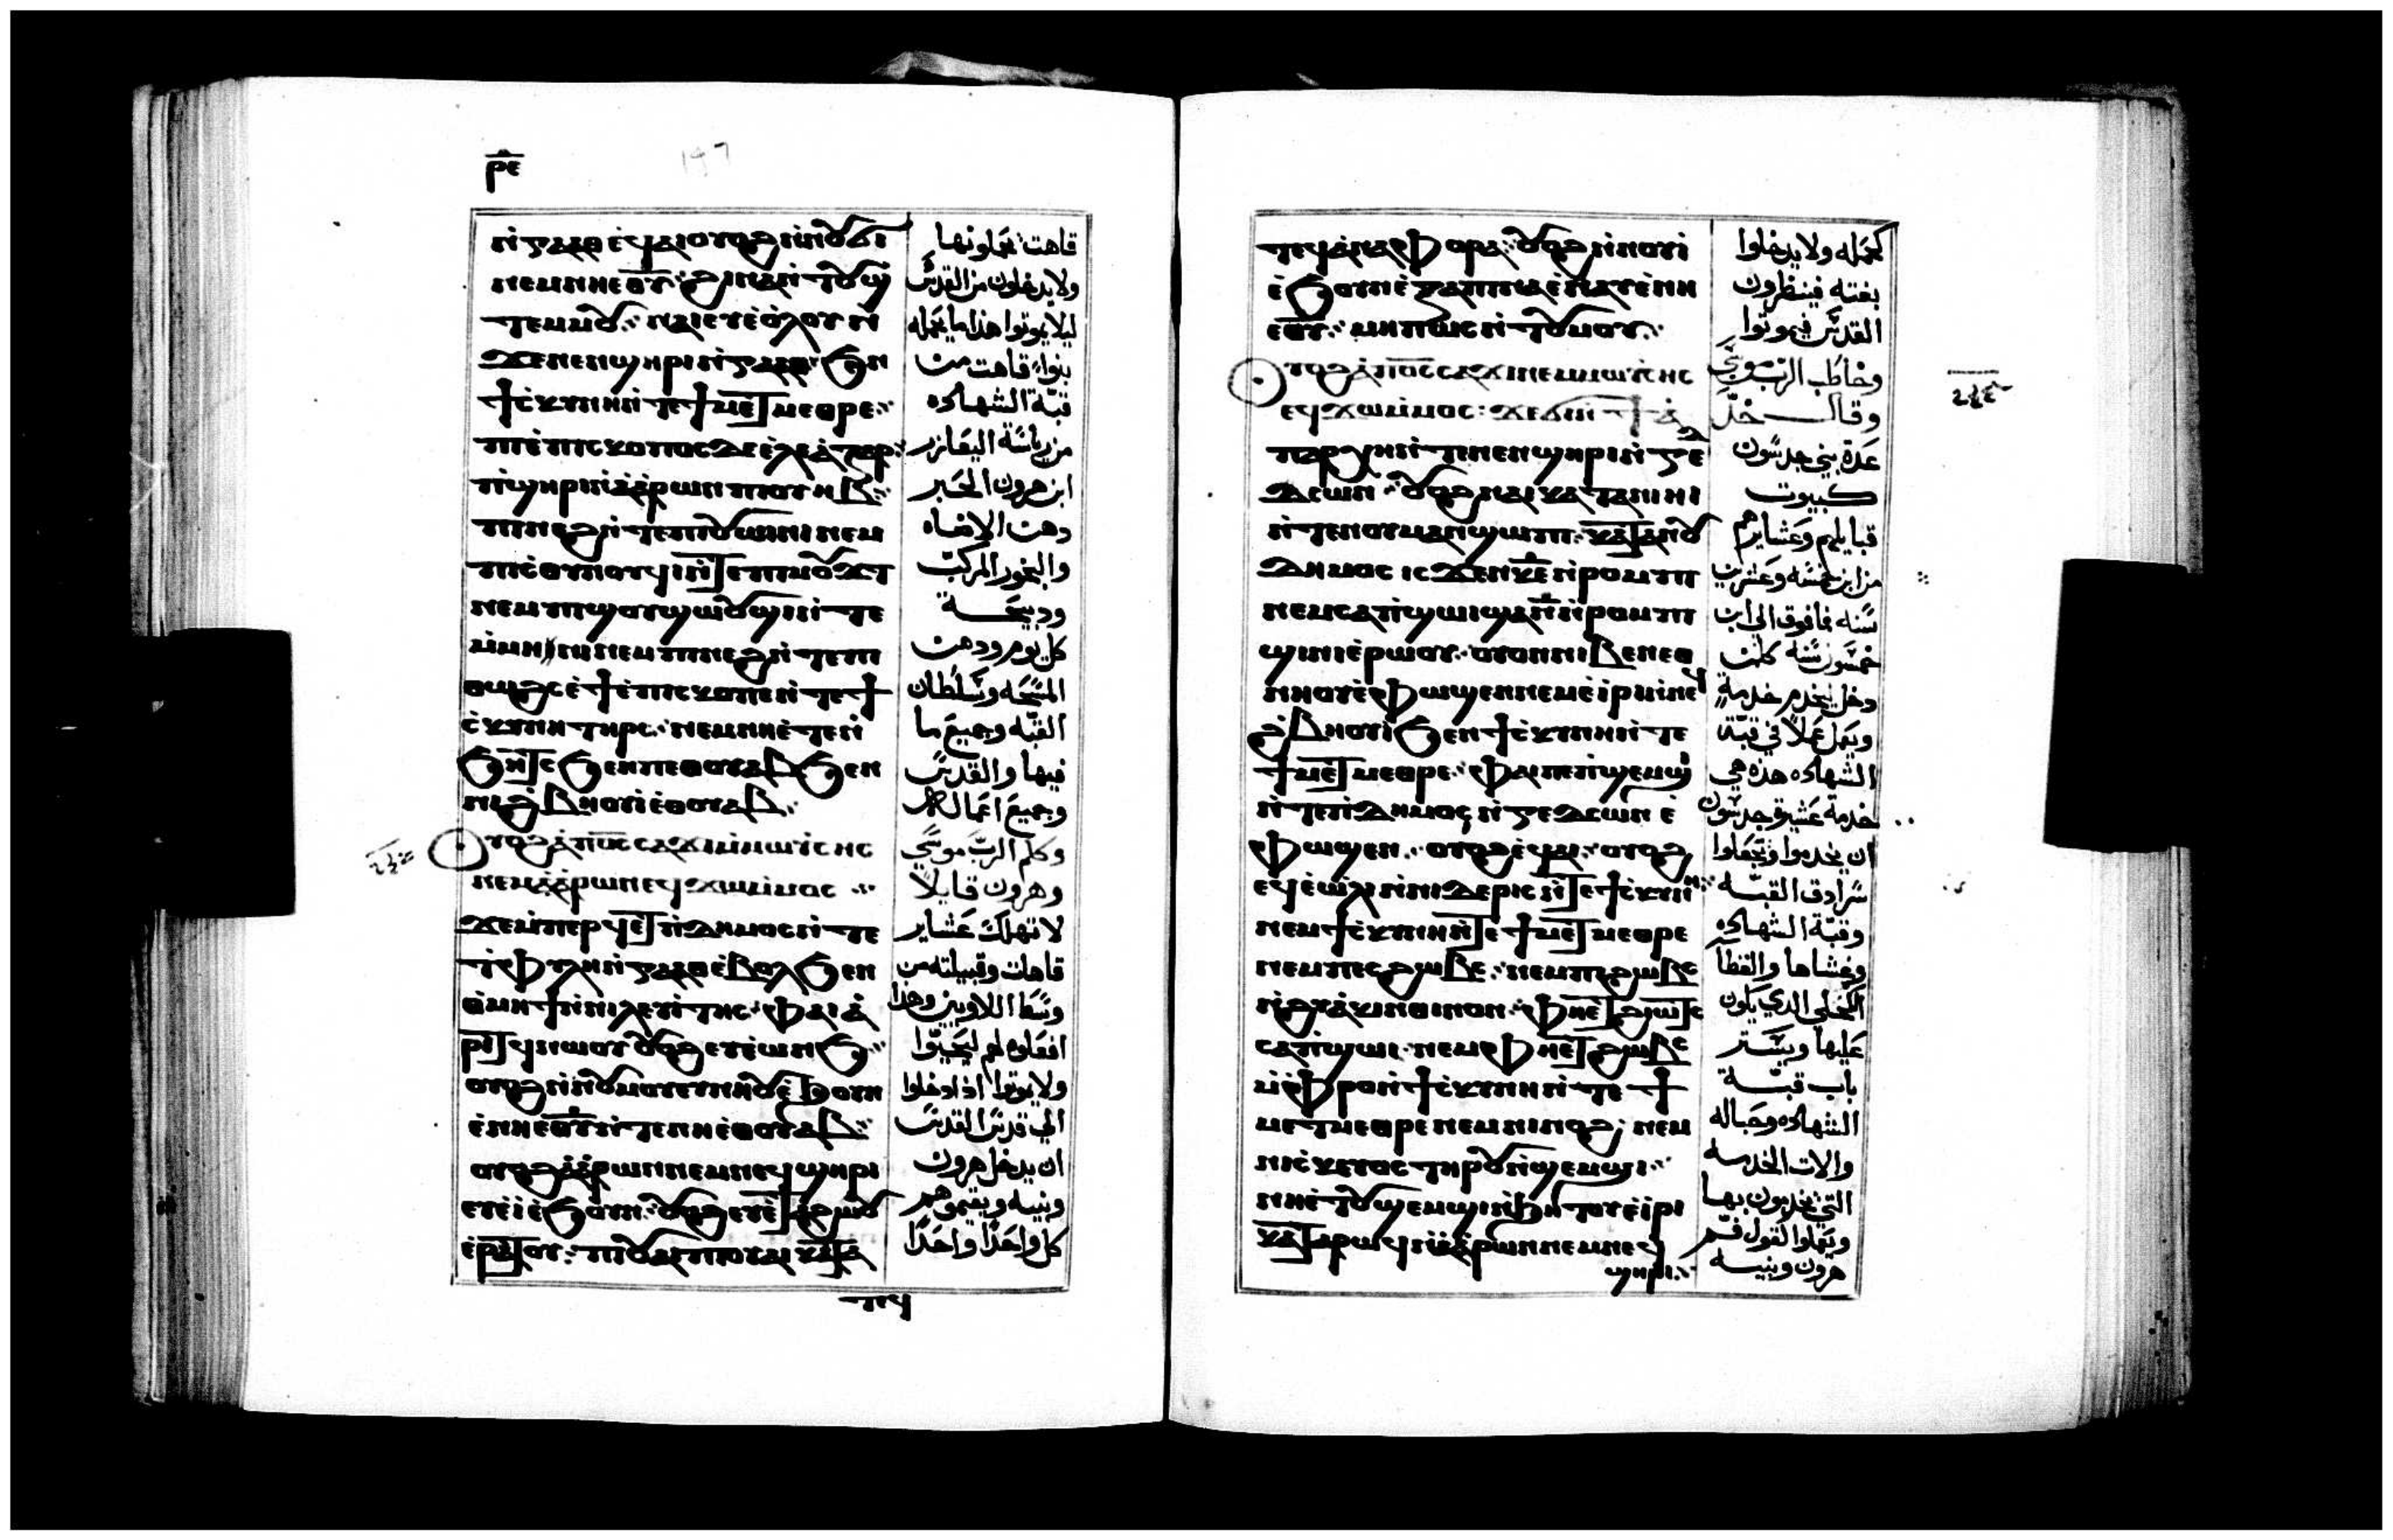 ⲣⲉ
ⲛ̀ⲕⲁⲁⲑ ⲉϥⲁⲓ ⲟⲩⲟϩ ⲛ̀ⲛⲟⲩϭⲓ
ⲛⲉⲙ ⲛⲏⲉⲑⲩ ϩⲓⲛⲁ ⲛ̀ⲧⲟⲩϣ
ⲧⲉⲙⲙⲟⲩ ⲛⲁⲓ ⲉⲩⲉ̀ⲟ̀ⲗⲟⲩ ⲛ̀
ϫⲉⲛⲉⲛϣⲏⲣⲓ ⲛ̀ⲕⲁⲁⲑ ϧⲉⲛ
ϯⲥ̀ⲕⲩⲛⲏ ⲛ̀ⲧⲉ ϯⲙⲉⲧⲙⲉⲑⲣⲉ
ⲡⲓⲉ̀ⲡⲓⲥⲕⲟⲡⲟⲥ ⲇⲉ ⲉ̀ⲗⲉⲁ̀ⲍⲁⲣ
ⲡ̀ϣⲏⲣⲓ ⲛ̀ⲁ̀ⲁ̀ⲣⲱⲛ ⲡⲓⲟⲩⲏⲃ
ⲡⲓⲛⲉϩ ⲛ̀ⲧⲉ ⲡⲓⲟⲩⲱⲓⲛⲓ ⲛⲉⲙ
ⲡⲓⲥ̀ⲑⲟⲓⲛⲟⲩϥⲓ ⲛ̀ⲧⲉ ⲡⲓⲙⲟⲩϫⲧ
ⲛⲉⲙ ⲡⲓϣⲟⲩϣⲱⲟⲩϣⲓ ⲛ̀ⲧⲉ
ⲙ̀ⲙⲏⲛⲓ ⲛⲉⲙ ⲡⲓⲛⲉϩ ⲛ̀ⲧⲉ ⲡⲓ
ⲑⲱϩⲥ ⲉ̀ϯⲉ̀ⲡⲓⲥⲕⲟⲡⲉ ⲛ̀ⲧⲉ ϯ
ⲥ̀ⲕⲩⲛⲏ ⲧⲏⲣⲥ ⲛⲉⲙ ⲛⲏⲉ̀ⲧⲉⲛ̀
ϧⲏⲧⲥ ϧⲉⲛ ⲡⲉⲑⲟⲩⲁⲃ ϧⲉⲛ
ⲛⲓϩ̀ⲃⲏⲟⲩⲓ ⲉ̀ⲑⲟⲩⲁⲃ
ⲩⲟϩ ⲁ̀ⲡⲟ̅ⲥ̅ ⲥⲁϫⲓ ⲙ̀ⲙⲱⲩⲥⲏⲥ
ⲛⲉⲙ ⲁ̀ⲁ̀ⲣⲱⲛ ⲉϥϫⲱ ⲙ̀ⲙⲟⲥ
ϫⲉ ⲙ̀ⲡⲉⲣϥⲉⲧ ⲛ̀ⲇⲏⲙⲟⲥ ⲛ̀ⲧⲉ
ⲧ̀ⲫⲩⲗⲏ ⲛ̀ⲕⲁⲁⲑ ⲉ̀ⲃⲟⲗ ϧⲉⲛ
ⲑ̀ⲙⲏϯ ⲛ̀ⲛⲓⲗⲉⲩⲓⲧⲏⲥ ⲫⲁⲓ ⲁ̀
ⲣⲓⲧϥ ⲛⲱⲟⲩ ⲟⲩⲟϩ ⲉⲩⲉ̀ⲱⲛϧ
ⲟⲩⲟϩ ⲛ̀ⲛⲟⲩⲙⲟⲩ ⲉⲩⲛⲏⲟⲩ ⲉ̀ϧⲟⲩⲛ
ⲉ̀ⲛⲏⲉⲑⲩ ⲛ̀ⲧⲉ ⲛⲏⲉ̀ⲑⲟⲩⲁⲃ
ⲟⲩⲟϩ ⲁ̀ⲁ̀ⲣⲱⲛ ⲛⲉⲙ ⲛⲉϥϣⲏⲣⲓ
ⲉⲩⲉ̀ⲓ̀ ⲉ̀ϧⲟⲩⲛ ⲟⲩⲟϩ ⲉⲩⲉ̀ⲧⲁϩⲱⲟⲩ
ⲉ̀ⲣⲁⲧⲟⲩ ⲡⲓⲟⲩⲁⲓ ⲡⲓⲟⲩⲁⲓ ⲕⲁⲧⲁ
ⲧⲉϥ
قاهت يحملونها
ولا يدخلون من القدس
ليلا يموتوا هذا ما يحمله
بنواء قاهت من
قبّة الشهاده
من رياسة اليعازر
ابن هرون الحبر
دهن الاضاه
والبخور المركب
ودبيحـــة
كل يوم ودهن
المسحه وسلطان
القبّه وجميع ما
فيها والقدس
وجميع اعمالـ
وكلم الربّ موسي
وهرون قايلاً
لا تهلك عشاير
قاهات وقبيلته من
وسط اللاويين وهذا
افعلوه لهم ليحيوا
ولا يموتوا اذا دخلوا
الي قدس القدس
ان يدخل هرون
وبنيه ويقيموهم
كل واحدًا واحدًا
ⲧⲉϥⲁ̀ⲛⲁⲫⲟⲣⲁ ⲟⲩⲟϩ ⲛ̀ⲛⲟⲩⲓ̀
ⲉ̀ϧⲟⲩⲛ ⲉ̀ⲝⲁⲡⲓⲛⲁ ⲉ̀ⲛⲁⲩ ⲉ̀ⲛⲏ
ⲉⲑⲩ ⲙⲏⲡⲱⲥ ⲛ̀ⲧⲟⲩⲙⲟⲩ
ⲩⲟϩ ⲁ̀ⲡⲟ̅ⲥ̅ ⲥⲁϫⲓ ⲛⲉⲙ ⲙⲱⲩⲥⲏⲥ
ⲉϥϫⲱ ⲙ̀ⲙⲟⲥ ϫⲉ ϭⲓ ⲛ̀ϯⲁ̀
ⲡⲁⲣⲭⲏ ⲛ̀ⲧⲉ ⲛⲉⲛϣⲏⲣⲓ ⲛ̀ⲅⲉ
ⲇⲥⲱⲛ ⲟⲩⲟϩ ⲛⲁⲓ ⲕⲁⲧⲁ ⲛⲓⲏⲓ
ⲛ̀ⲧⲉ ⲛⲟⲩⲙⲁⲛϣⲱⲡⲓ ⲕⲁⲧⲁ ⲛⲟⲩ
ⲇⲏⲙⲟⲥ ⲓⲥϫⲉⲛ ⲕ̅ⲉ̅ ⲛ̀ⲣⲟⲙⲡⲓ
ⲛⲉⲙ ⲥⲁⲡ̀ϣⲱⲓ ϣⲁ ⲛ̅ ⲛ̀ⲣⲟⲙⲡⲓ
ϣⲓⲛⲓ ⲉ̀ⲣⲱⲟⲩ ⲟⲩⲟⲛ ⲛⲓⲃⲉⲛ ⲉⲑ
ⲛⲏⲟⲩ ⲉ̀ⲫⲱϣⲉⲛ ⲛⲉⲙ ⲉ̀ⲓ̀ⲣⲓ ⲛ̀ⲛⲉϥ
ϩ̀ⲃⲏⲟⲩⲓ ϧⲉⲛ ϯⲥ̀ⲕⲩⲛⲏ ⲛ̀ⲧⲉ
ϯⲙⲉⲧⲙⲉⲑⲣⲉ ⲫⲁⲓ ⲡⲉ ⲡ̀ϣⲉⲙϣⲓ
ⲛ̀ⲧⲉ ⲡ̀ⲇⲏⲙⲟⲥ ⲛ̀ⲅⲉⲇⲥⲱⲛ ⲉ̀
ⲫⲱϣⲉⲛ ⲟⲩⲟϩ ⲉ̀ϥⲁⲓ ⲟⲩⲟϩ
ⲉϥⲉ̀ⲱ̀ⲗⲓ ⲛ̀ⲛⲓⲇⲉⲣⲓⲥ ⲛ̀ⲧⲉ ϯⲥ̀ⲕⲩⲛⲏ
ⲛⲉⲙ ϯⲥ̀ⲕⲩⲛⲏ ⲛ̀ⲧⲉ ϯⲙⲉⲧⲙⲉⲑⲣⲉ
ⲛⲉⲙ ⲡⲉⲥϩⲱⲃⲥ ⲛⲉⲙ ⲡⲓϩⲱⲃⲥ
ⲛ̀ϩⲩⲁ̀ⲕⲓⲛⲑⲓⲛⲟⲛ ⲫⲏⲉ̀ⲧϩⲓⲱⲧⲥ
ⲥⲁⲡ̀ϣⲱⲓ ⲛⲉⲙ ⲫⲏⲉ̀ⲧϩⲱⲃⲥ
ⲙ̀ⲫ̀ⲣⲟ ⲛ̀ϯⲥ̀ⲕⲩⲛⲏ ⲛ̀ⲧⲉ ϯ
ⲙⲉⲧⲙⲉⲑⲣⲉ ⲛⲉⲙ ⲛⲓⲛⲟϩ ⲛⲉⲙ
ⲛⲓⲥ̀ⲕⲉⲩⲟⲥ ⲧⲏⲣⲟⲩ ⲛ̀ϣⲉⲙϣⲓ
ⲛⲏⲉ̀ⲧⲟⲩϣⲉⲙϣⲓ ⲛ̀ϧⲏⲧⲟⲩ ⲉ̀ⲓⲣⲓ
ⲕⲁⲧⲁ ⲣⲱϥ ⲛ̀ⲁ̀ⲁ̀ⲣⲱⲛ ⲛⲉⲙ ⲛⲉϥ
ϣⲏⲣⲓ
كحمله ولا يدخلوا
بغته فينظرون
القدس فيموتوا
وخاطب الرب موسي
وقال خذ
عدة بني جدسون
كبيوت
قبايلهم وعشايرهم
من ابن خمسه وعشرين
سنه فما فوق الي ابن
خمسون سنه كلمن
دخل ليخدم خدمة
ويعمل عملاً في قبّة
الشهاده هذه هي
خدمة عشيرة جدسون
ان يخدموا ويحملوا
سرادق القبّــه
وقبّة الشهاده
وغشاها والغطا
الكحلي الدي يكون
عليها ويستر
باب قبّـــة
الشهاده وحباله
والات الخدمه
التي يخدمون بها
ويعملوا كقول فـم
هرون وبنيـــه